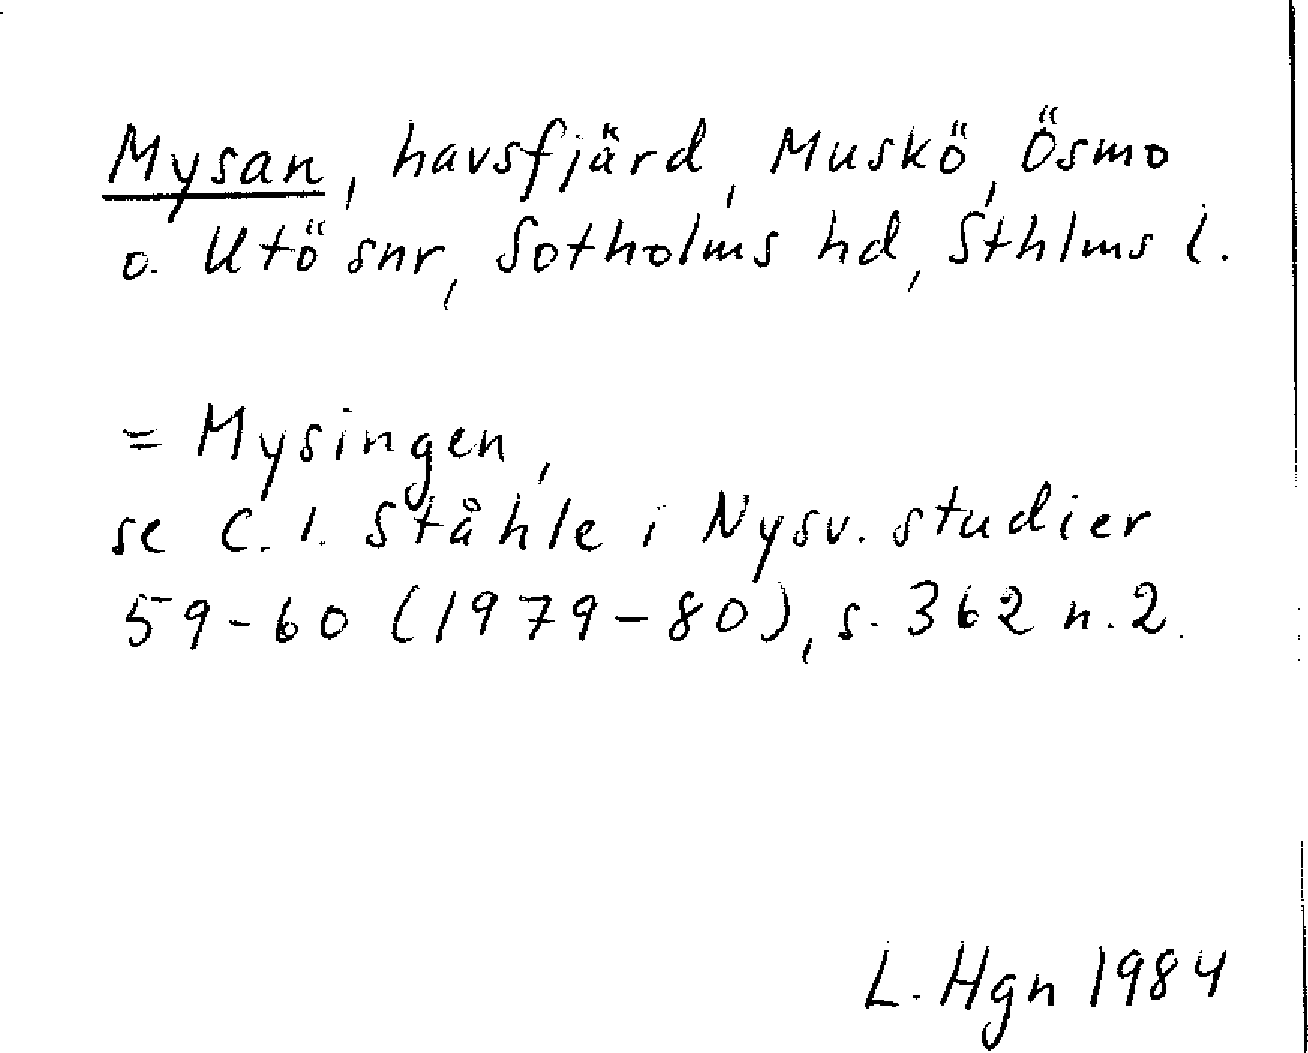 Mysan, havsfjärd, Muskö, Ösmo
o. Utö snr, Sotholms hd, Sthlms l.
= Mysingen,
se C. I. Ståhle i Nysv. studier
59-60 (1979-80), s. 362 n. 2.
L. Hgn 1984